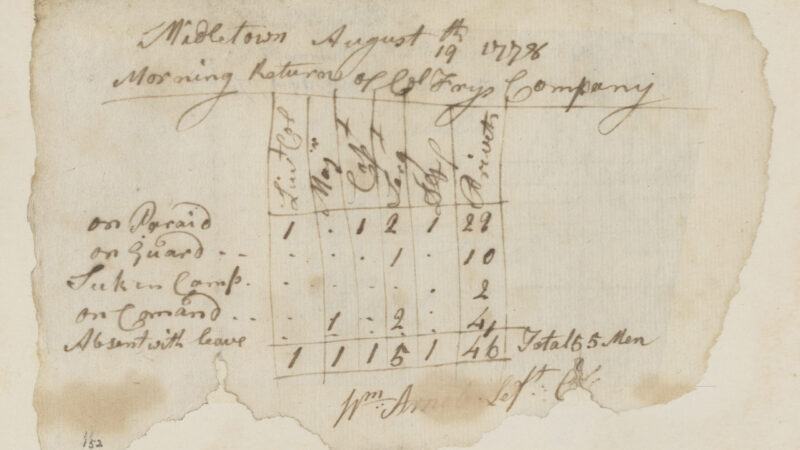 Midletown August 19th 1778
Morning Return of Col Frys Company
Liut Col Maj Capt Serg Privets
on Paraid 1 . 1 2 1 29
on Guard . . . . . 1 . 10
Sick in Camp . . . . . . 2
on Comand . . . 1 . 2 . 4
Absent with leave . . . . . 1
1 1 1 5 1 46 Total 55 Men
Wm. Left. Col
1/52